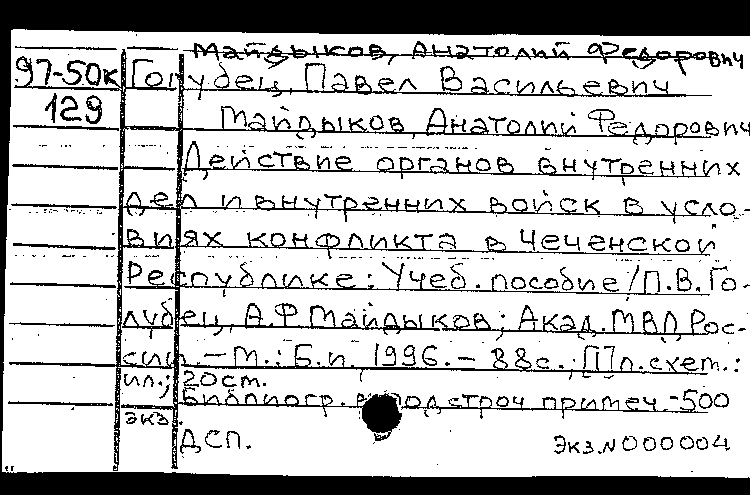 Майдыков, Анатолий Федорович
97-50к Голубец, Павел Васильевич
129 Майдыков, Анатолий Федорович
Действие органов внутренних
дел и внутренних войск в усло-
виях конфликта в Чеченской
Республике: Учеб. пособие / П.В. Го-
лубец, А.Ф Майдыков; Акад. МВД Рос-
сии. – М.: Б.и., 1996. – 88с., [1] л. схем.:
ил.; 20 ст.
Библиогр. в подстроч примеч. - 500
экз.
ДСП. Экз. N 000004